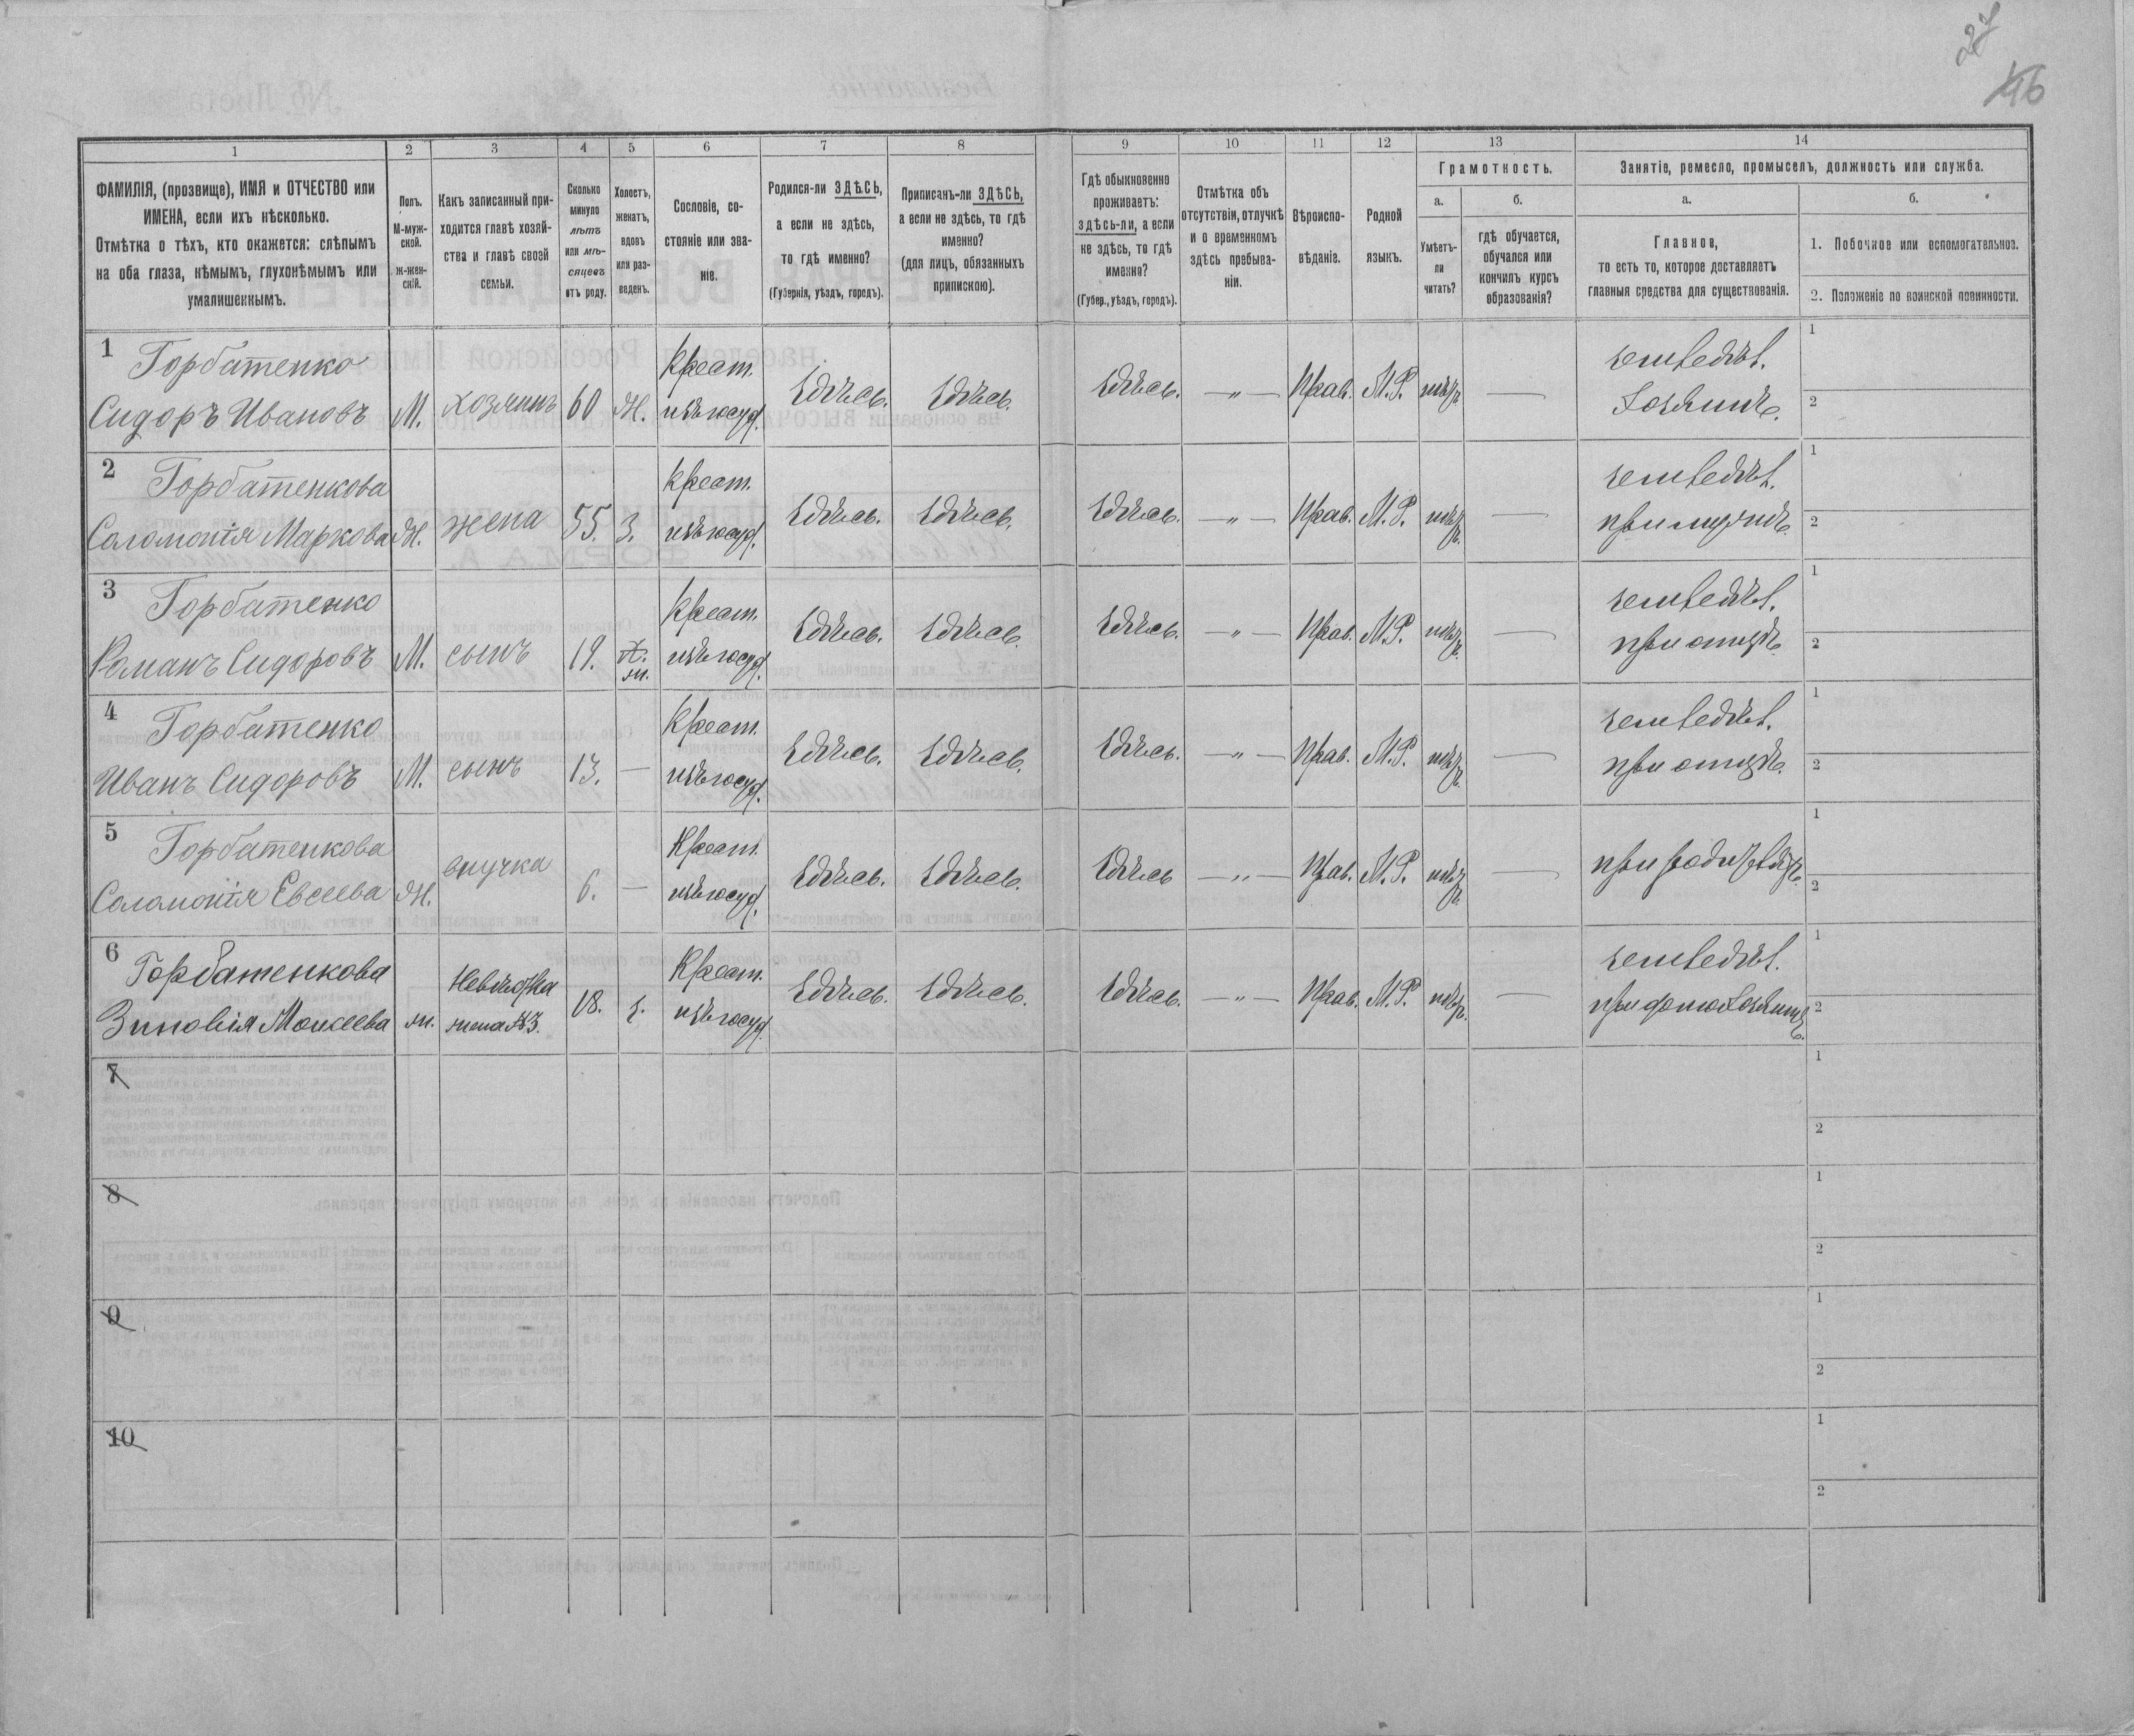 27
46
1
2
3
4
5
6
7
8
9
10
11
12
13
14
ФАМИЛІЯ, (прозвище), ИМЯ и ОТЧЕСТВО или
ИМЕНА, если ихъ нѣсколько.
Отмѣтка о тѣхъ, кто окажется: слѣпымъ
на оба глаза, нѣмымъ, глухонѣмымъ или
умалишеннымъ.
Полъ.
М-муж-
ской.
Ж-жен-
скій.
Какъ записанный при-
ходится главѣ хозяй-
ства и главѣ своей
семьи.
Сколько
минуло
лѣтъ
или мѣ-
сяцевъ
отъ роду.
Холостъ,
женатъ,
вдовъ
или раз-
веденъ.
Сословіе, со-
стояніе или зва-
ніе.
Родился-ли ЗДѢСЬ,
а если не здѣсь,
то гдѣ именно?
(Губернія, уѣздъ, городъ).
Приписанъ-ли ЗДѢСЬ,
а если не здѣсь, то гдѣ
именно?
(для лицъ, обязанныхъ
припискою).
Гдѣ обыкновенно
проживаетъ:
здѣсь-ли, а если
не здѣсь, то гдѣ
именно?
(Губер., уѣздъ, городъ).
Отмѣтка объ
отсутствіи, отлучкѣ
и о временномъ
здѣсь пребыва-
ніи.
Вѣроиспо-
вѣданіе.
Родной
языкъ.
Грамотность.
а.
Умѣетъ-
ли
читать?
б.
гдѣ обучается,
обучался или
кончилъ курсъ
образованія?
Занятіе, ремесло, промыселъ, должность или служба.
а.
Главное,
то есть то, которое доставляетъ
главныя средства для существованія.
б.
1. Побочное или вспомогательное.
2. Положеніе по воинской повинности.
1 Горбатенко
Сидоръ Ивановъ
М.
хозяинъ
60
Ж.
Крест.
изъ госуд.
Здѣсь.
Здѣсь.
Здѣсь.
— „ —
Прав.
М.Р.
нѣтъ
—
земледѣл.
Хозяинъ.
1
2
2 Горбатенкова
Соломонія Маркова
Ж.
жена
55.
З.
Крест.
изъ госуд.
Здѣсь.
Здѣсь.
Здѣсь.
— „ —
Прав.
М.Р.
нѣтъ.
—
земледѣл.
при мужѣ.
1
2
3 Горбатенко
Романъ Сидоровъ
М.
сынъ
19.
ж.
Крест.
изъ госуд.
Здѣсь.
Здѣсь.
Здѣсь.
— „ —
Прав.
М.Р.
нѣтъ.
—
земледѣл.
при отцѣ.
1
2
4 Горбатенко
Иванъ Сидоровъ
М.
сынъ
13.
—
Крест.
изъ госуд.
Здѣсь.
Здѣсь.
Здѣсь.
— „ —
Прав.
М.Р.
нѣтъ.
—
земледѣл.
при отцѣ.
1
2
5 Горбатенкова
Соломонія Евсеева
Ж.
внучка
6.
—
Крест.
изъ госуд.
Здѣсь.
Здѣсь.
Здѣсь
— „ —
Прав.
М.Р.
нѣтъ.
—
1
2
6 Горбатенкова
Зиновія Моисеева
ж.
Невѣстка
жена №3.
18.
з.
Крест.
изъ госуд.
Здѣсь.
Здѣсь.
Здѣсь.
— „ —
Прав.
М.Р.
нѣтъ.
—
земледѣл.
1
2
7
1
2
8
1
2
9
1
2
10
1
2